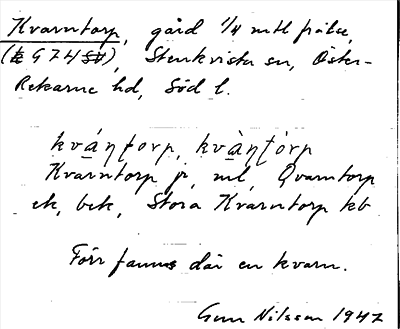 Kvarntorp, gård 1/4 mtl frälse,
(E G 7 4 Sö), Stenkvista sn, Öster-
Rekarne hd, Söd l.
kváṇtorp, kvàṇtórp
Kvarntorp jr, ml, Qvarntorp
ek, bek, Stora Kvarntorp kb
Förr fanns där en kvarn.
Gun Nilsson 1947